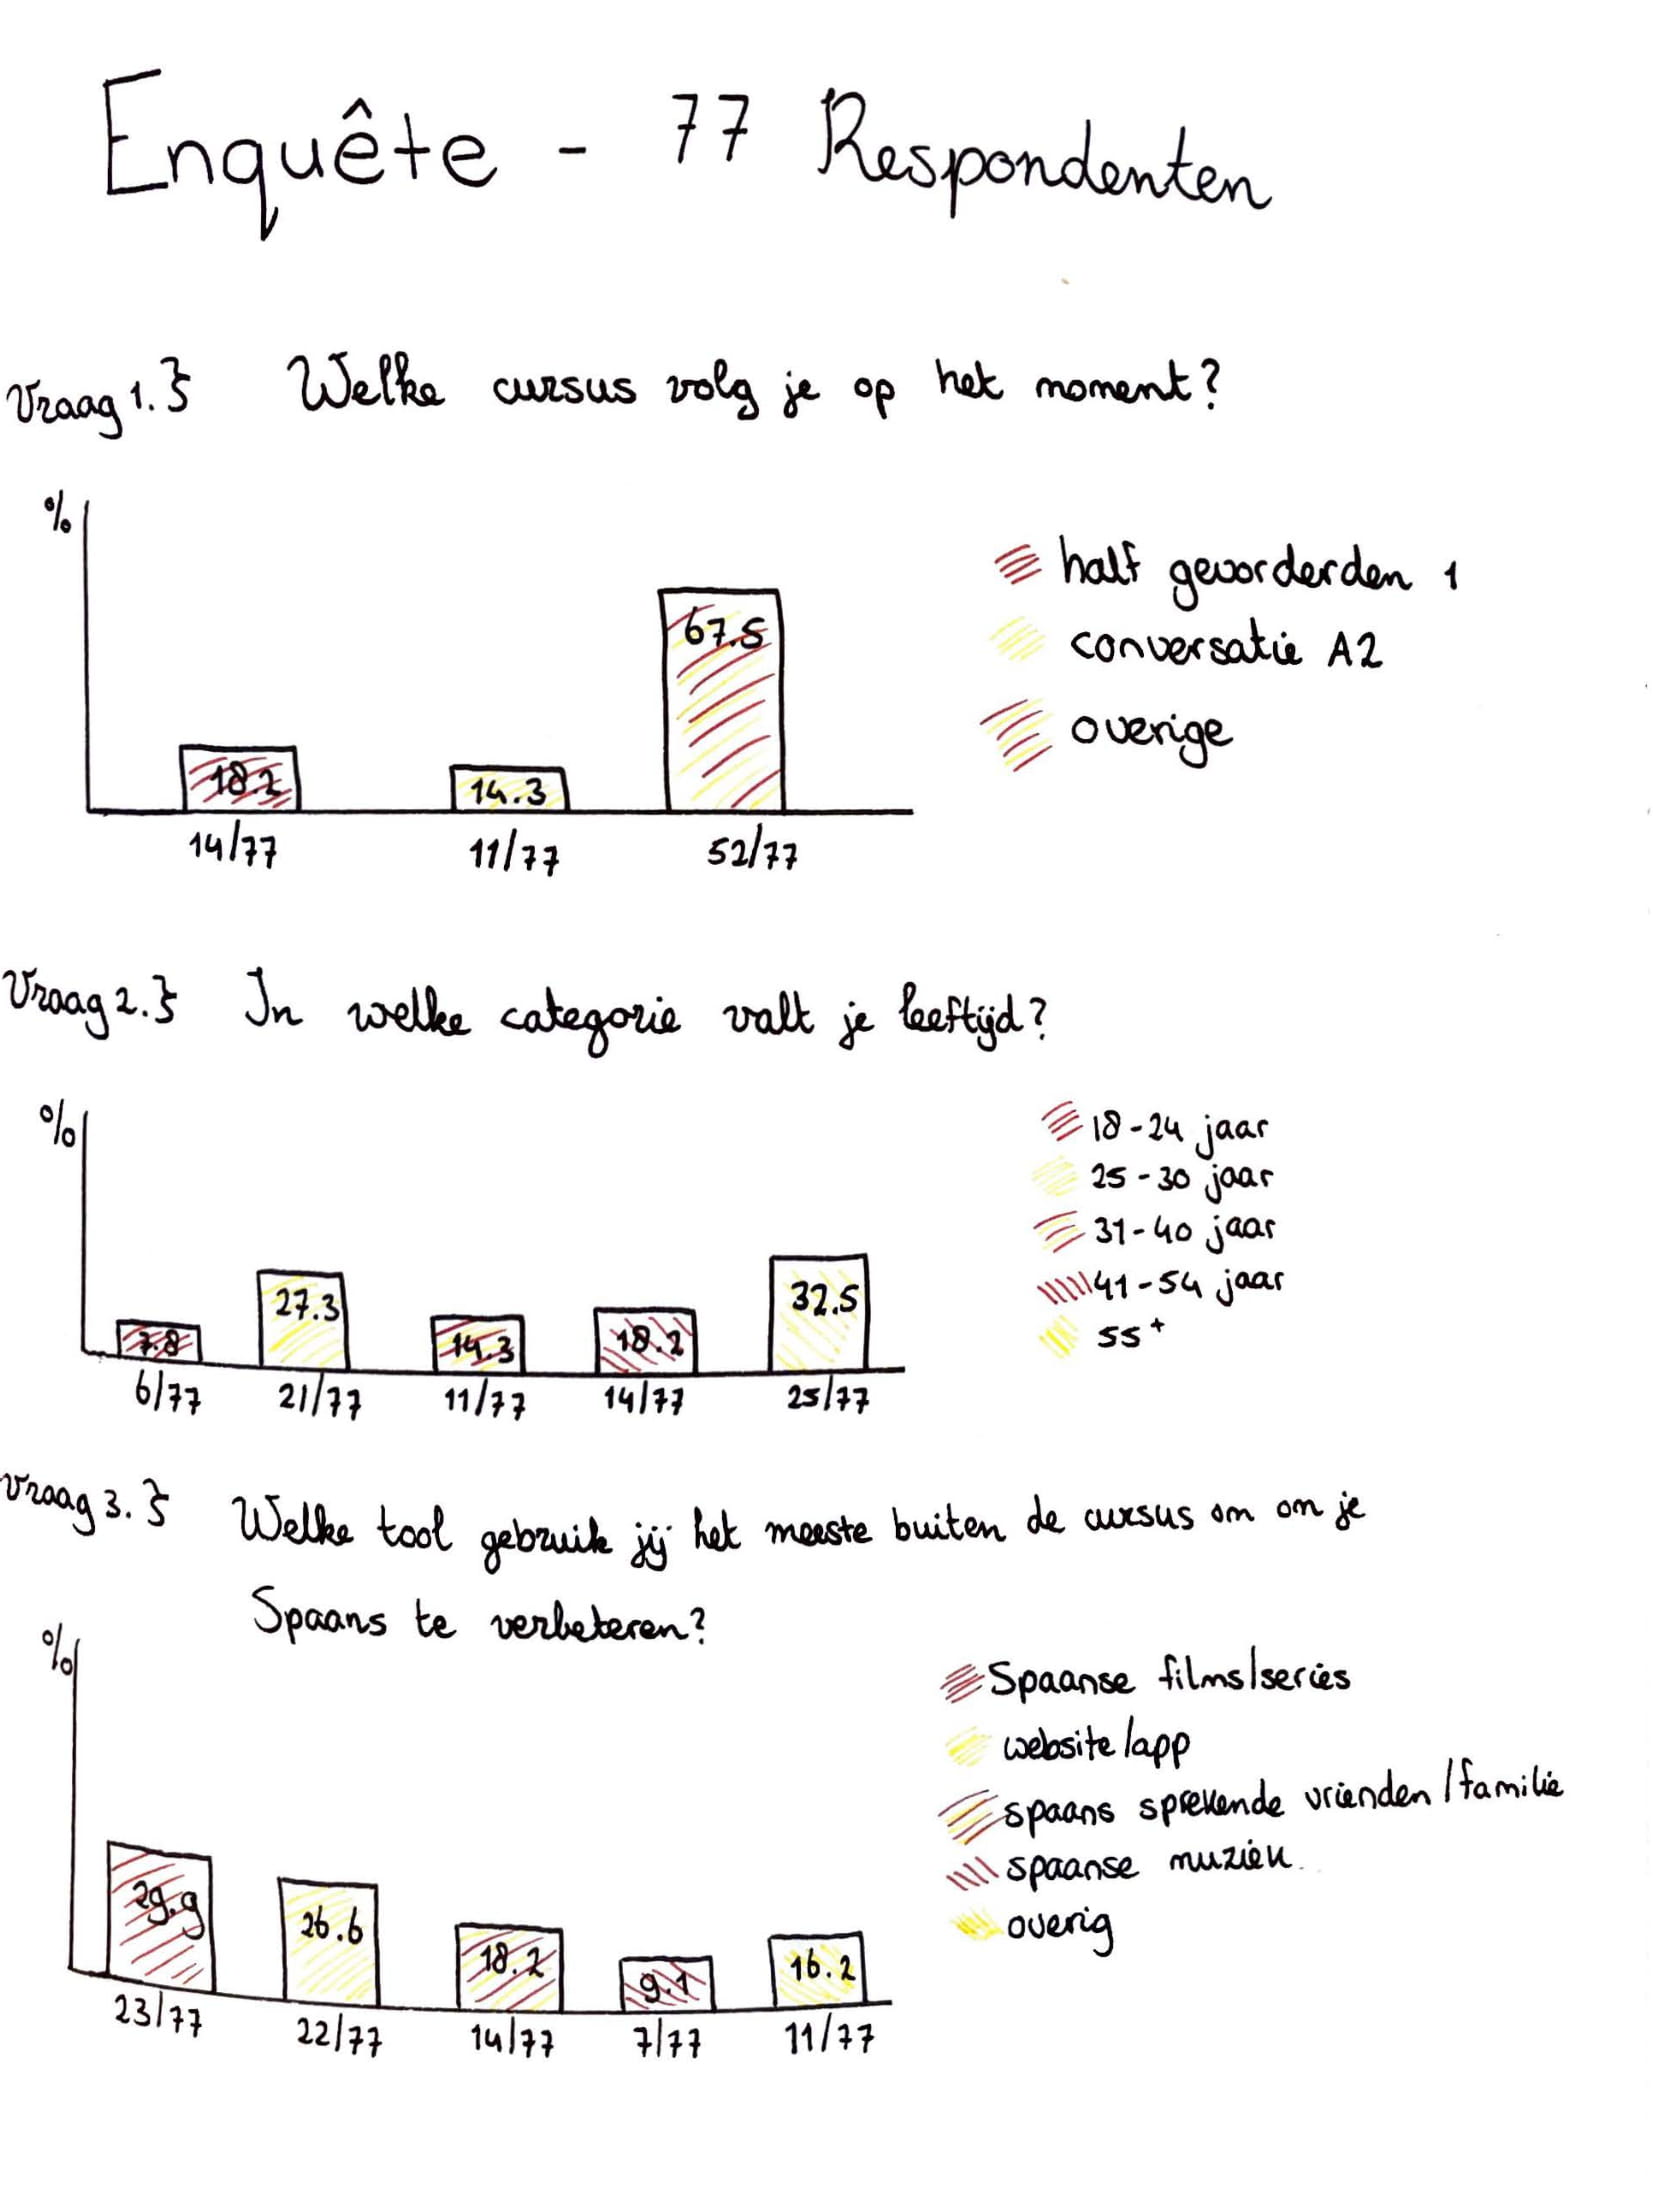 Enquête - 77 Respondenten
Vraag 1.} Welke cursus volg je op het moment?
%
67.5
18.2
14.3
14/77 11/77 52/77
half gevorderden 1
conversatie A2
overige
Vraag 2.} In welke categorie valt je leeftijd?
%
7.8 27.3 14.3 18.2 32.5
6/77 21/77 11/77 14/77 25/77
18-24 jaar
25-30 jaar
31-40 jaar
41-54 jaar
55+
Vraag 3.} Welke tool gebruik jij het meeste buiten de cursus om om je
Spaans te verbeteren?
%
29.9 26.6 18.2 9.1 16.2
23/77 22/77 14/77 7/77 11/77
Spaanse films/series
website/app
spaans sprekende vrienden/familie
spaanse muziek
overig